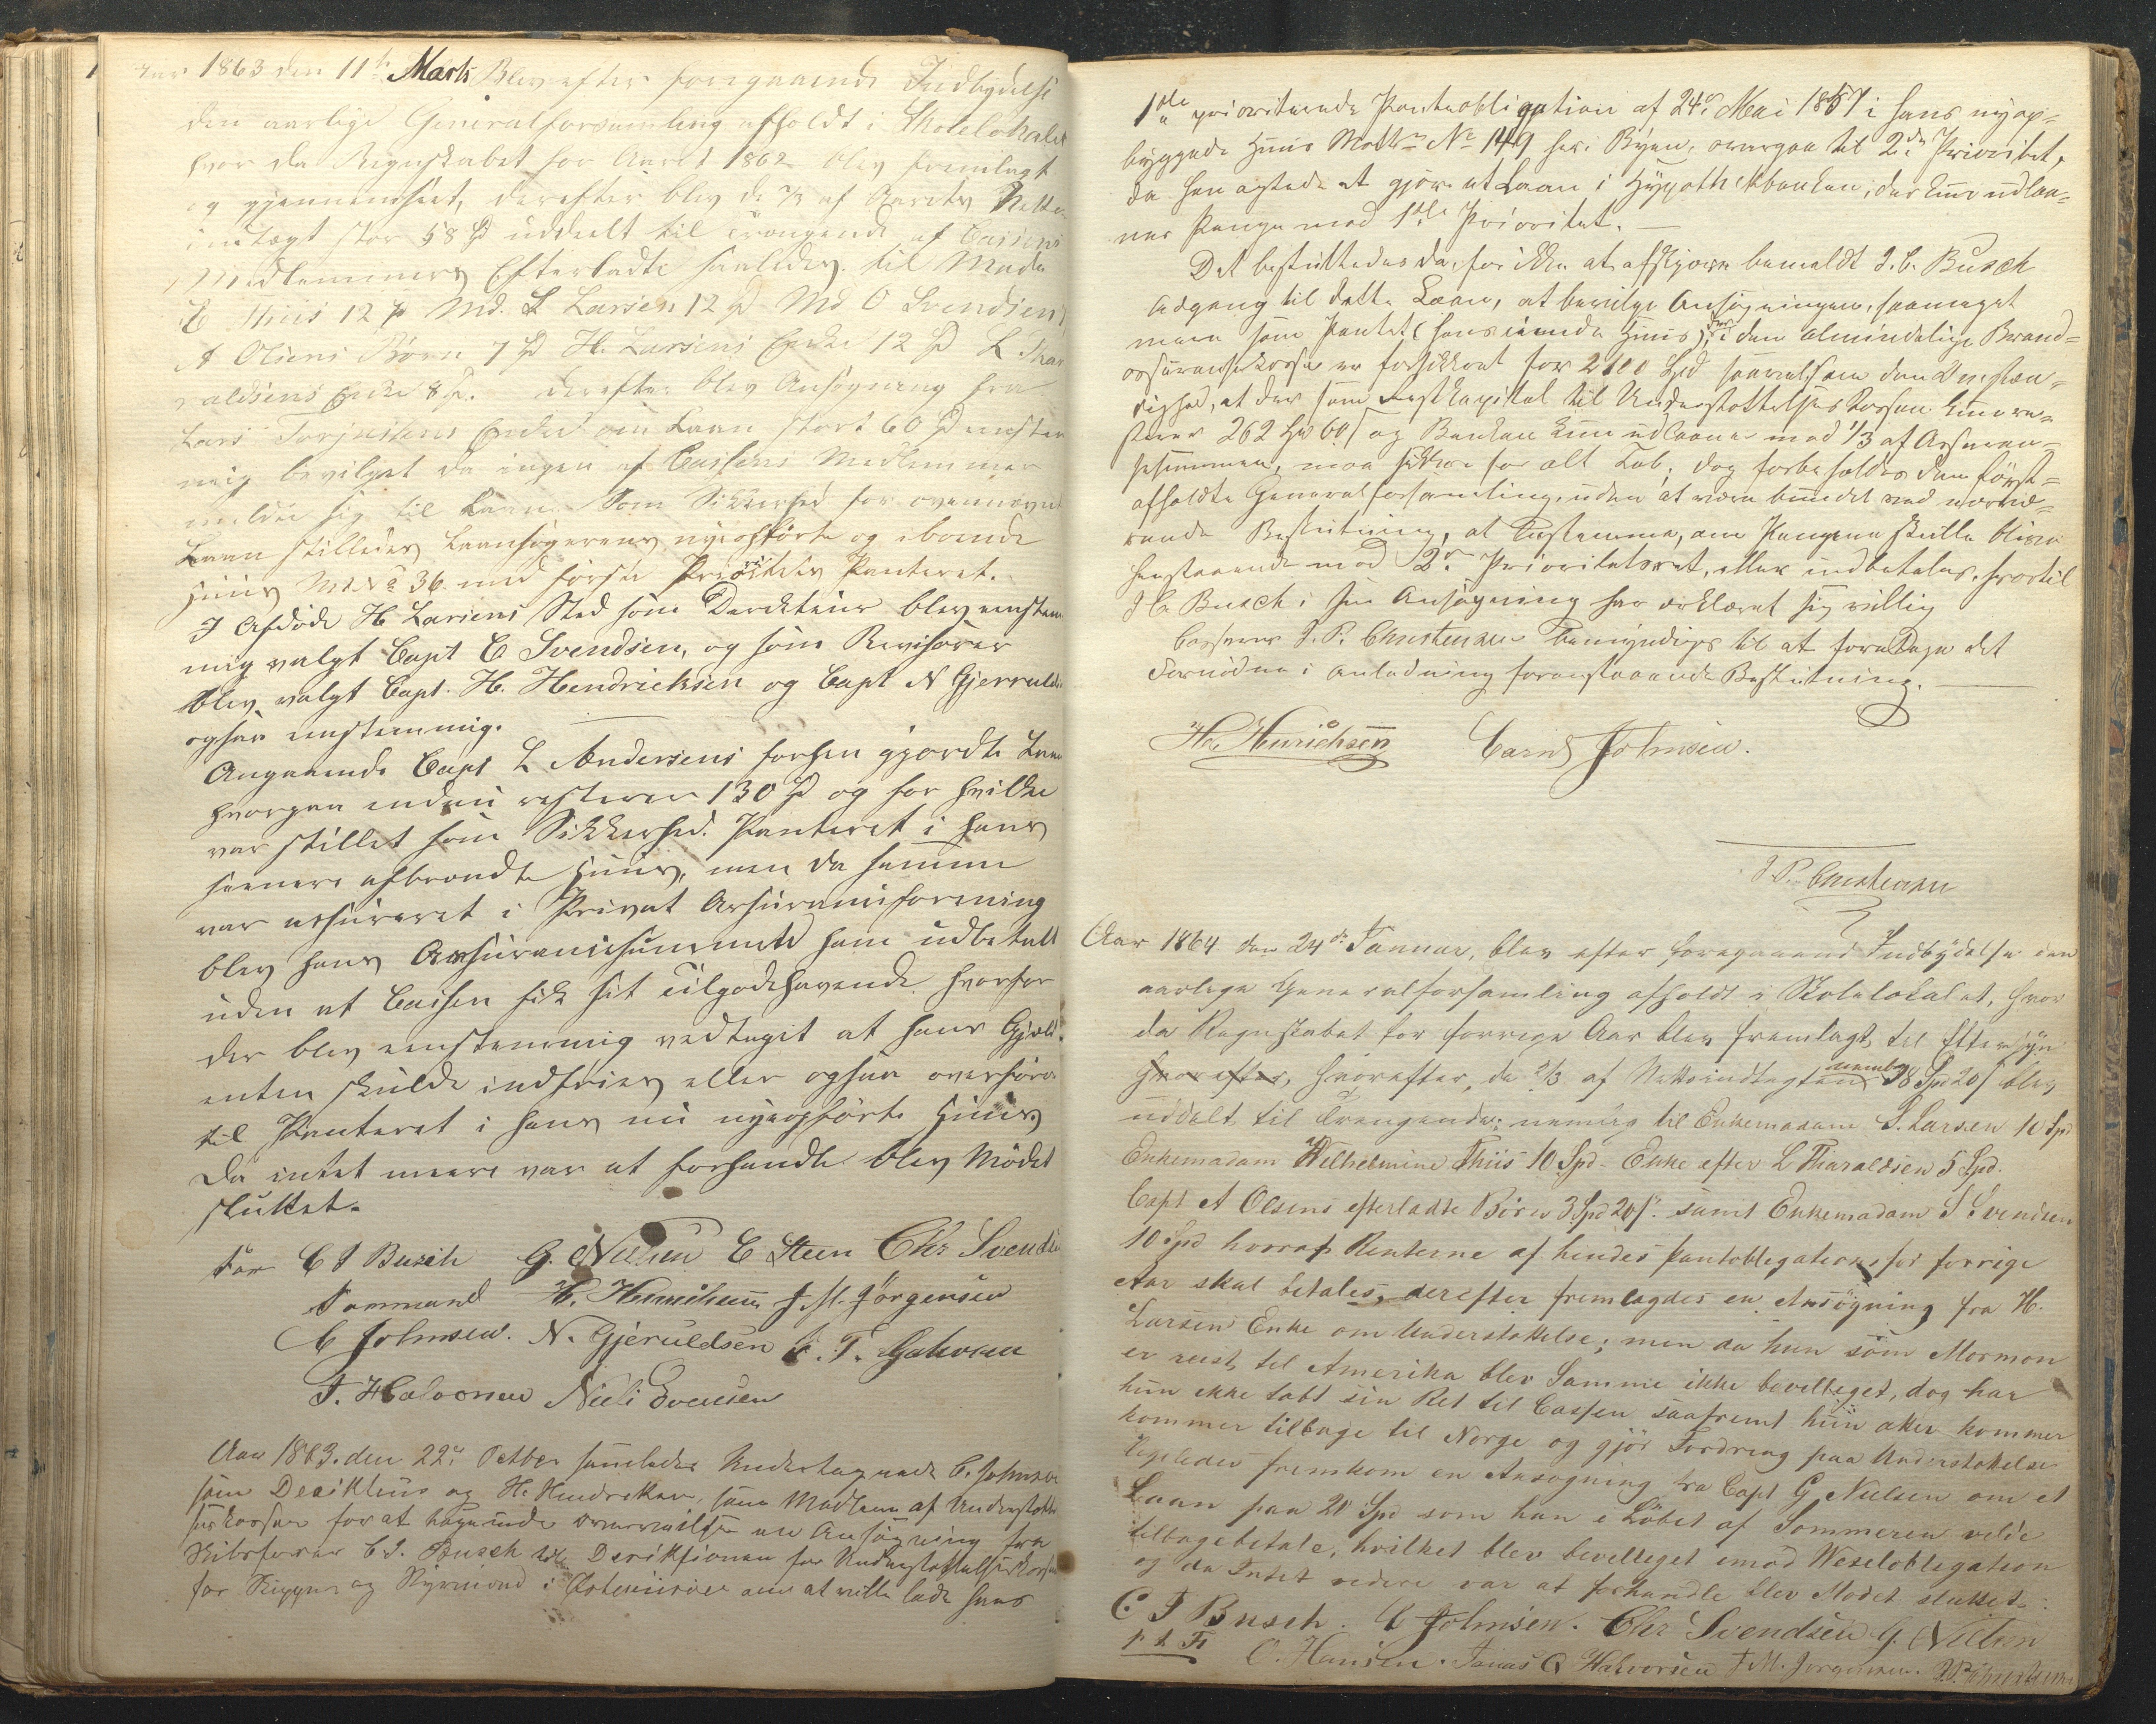 Aar 1863 den 11te Marts Blev efter foregaaende Indbydelse
den aarlige Generalforsamling afholdt i Skolelokalet
hvor da Regnskabet for Aaret 1862 blev fremlagt
og gjennemseet, derefter blev de 2/3 af Aarets Netto
indtægt stor 58 Spd uddeelt til trængende af Cassens
Medlemmers Efterladte saaledes til Mada
E Thiis 12 Spd Md. L Larsen 12 Spd Md O Svendsen
A Olsens Børn 7 Spd H. Larsens Enke 12 Spd L Thar
valdsens Enke 8 Spd. derefter blev Ansøgning fra
Lars Torjusens Enke om Laan stort 60 Spd eenstem
mig bevilget da ingen af Cassens Medlemmer
meldte sig til Laan. Som Sikkerhed for ovennævnte
Laan stilledes Laansøgerens nyeopførte og iboende
Huus Mt No 36 med første Prioritets Panteret.
I Afdøde H Larsens Sted som Direkteur blev eenstem
mig valgt Capt C Svendsen, og som Revisorer
blev valgt Capt. H. Hendrichsen og Capt N Gjeruldsen
ogsaa eenstemmig.
Angaaende Capt L Andersens forhen gjordte Laan
hvorpaa endnu resterer 130 Spd og for hvilke
var stillet som Sikkerhed Panteret i hans
senere afbrændte Huus, men da samme
var assureret i Privat Assuranceforening
blev hans Assurancesumma ham udbetalt
uden at Cassen fik sit Tilgodehavende hvorfor
der blev eenstemmig vedtaget at hans Gjæld
enten skulde indfries eller ogsaa overføres
til Panteret i hans nu nyeopførte Huus
Da intet meere var at forhandle blev Mødet
sluttet.
C J Busch G. Nielsen E Steen Chr Svendsen
Formand H. Henrichsen J. M. Jörgensen
C Johnsen. N. Gjeruldsen T. Halvorsen
T. Halvorsen Niels Evensen
Aar 1863. den 22de Octber samledes Undertegnede C. Johnsen
som Direkteur og H. Hendriksen, som Medlem af Understøttel
seskassen for at tage under overveielse en Ansøgning fra
Skibsfører C. J. Busch til Direktionen for Understøttelseskassen
for Skippere og Styrmænd i Østerriisøer om at ville lade hans
1ste prioriterende Panteobligation af 24de Mai 1857 i hans nyop=
byggede Huus Matr No 149 her i Byen, overgaa til 2den Prioritet,
da han agtede at gjøre et Laan i Hypothekbanken, der kun udlaa=
ner Penge mod 1ste Prioritet. —
Det besluttedes da, for ikke at afskjære bemeldt J. C. Busch
Adgang til dette Laan, at bevilge Ansøgningen, saameget
mere som Pantet (hans eiende Huus), i den almindelige Brand=
assurancekasse er forsikkret for 2100 Spd saavelsom den Omstæn=
dighed, at der som Restkapital til Understøttelseskassen kun re=
sterer 262 Spd 60 s og Banken kun udlaaner mod 1/3 af Assuran=
sesummen, maa sikkre for alt Tab; dog forbeholdes den først=
afholdte Generalforsamling, uden at være bundet ved nærvæ=
rende Beslutning, at bestemme, om Pengene skulle blive
henstaaende mod 2den Prioritetsret, eller indbetales, hvortil
J C. Busch i sin Ansøgning har erklæret sig villig
Casserer J. P. Christensen bemyndiges til at foretage det
Fornødne i Anledning foranstaaende Beslutning. —
H. Henrichsen Carius Johnsen.
J. P. Christensen
Aar 1864 den 24de Januar, blev efter foregaaend Indbydelse den
aarlige Generalforsamling afholdt i Skolelokalet, hvor
da Regnskabet for forrige Aar blev fremlagt til Eftersyn
hvorefter, hvorefter, de 2/3 af Nettoindtægten nemlig 38 Spd 20 s blev
uddelt til Trængende; nemlig til Enkemadam S. Larsen 10 Spd
Enkemadam Wilhelmine Thiis 10 Spd. Enke efter L Tharaldsen 5 Spd.
Capt A Olsens efterladte Börn 3 Spd 20 s. samt Enkemadam S Svendsen
10 Spd hvoraf Renterne af hendes Pantobligations for forrige
Aar skal betales, derefter fremlagdes en Ansögning fra H.
Larsen Enke om Understøttelse; men da hun som Mormon
er reist til Amerika blev Samme ikke bevilleget, dog har
hun ikke tabt sin Ret til Cassen saafremt hun atter kommer
kommer tilbage til Norge og gjör Fordring paa Understøttelse
ligeledes fremkom en Ansögning fra Capt G. Nielsen om et
Laan paa 20 Spd som han i Löbet af Sommeren vilde
tilbagebetale, hvilket blev bevilleget imod Vexelobligation
og da Intet videre var at forhandle blev Mødet sluttet.
C. J Busch. C Johnsen. Chr Svendsen G. Nielsen
p t F O. Hansen. Jonas O Halvorsen J. M. Jorgensen. J. P. Christensen